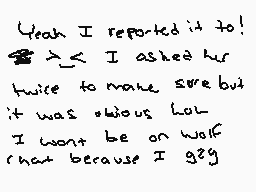 Yeah I reported it to!
>_< I asked her
twice to make sure but
it was obious lol
I wont be on wolf
chat because I g2g